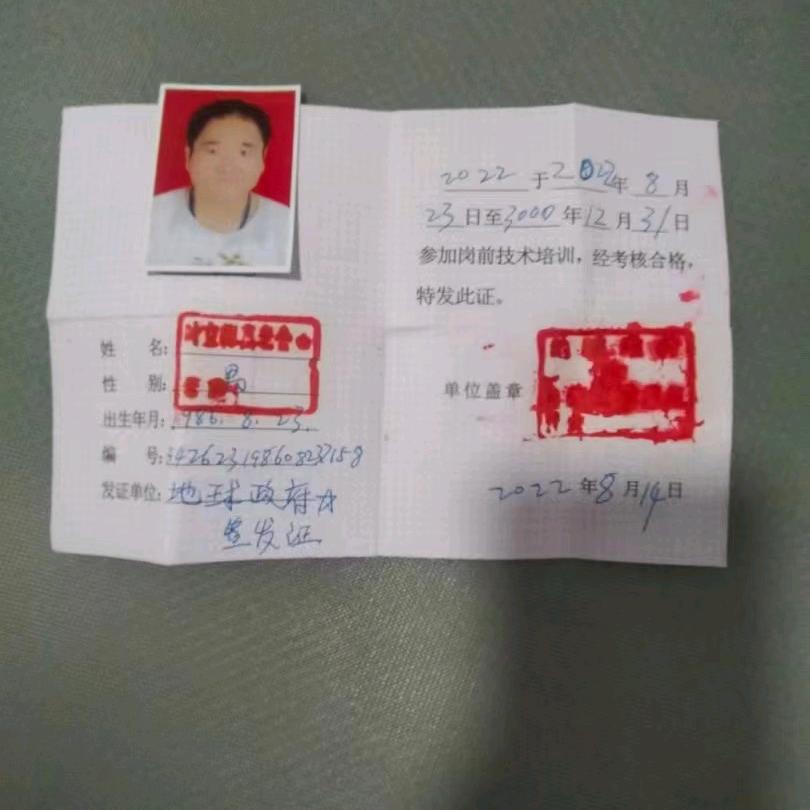 姓 名:
性 别: 男
出生年月: 1986.8.23.
编 号: 342623198608237158
发证单位: 地球政府
签发证
2022 于 2022年 8月
23日至3000年12月31日
参加岗前技术培训，经考核合格，
特发此证。
单位盖章
2022年8月14日